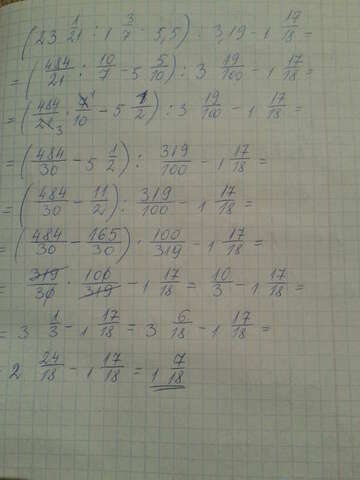 (23 1/21 : 1 3/7 - 5,5) : 3,19 - 1 17/18 =
= (484/21 : 10/7 - 5 5/10) : 3 19/100 - 1 17/18 =
= (484/21 3 · 7 1/10 - 5 1/2) : 3 19/100 - 1 17/18 =
= (484/30 - 5 1/2) : 319/100 - 1 17/18 =
= (484/30 - 11/2) : 319/100 - 1 17/18 =
= (484/30 - 165/30) · 100/319 - 1 17/18 =
= 319/30 · 100/319 - 1 17/18 = 10/3 - 1 17/18 =
= 3 1/3 - 1 17/18 = 3 6/18 - 1 17/18 =
= 2 24/18 - 1 17/18 = 1 7/18